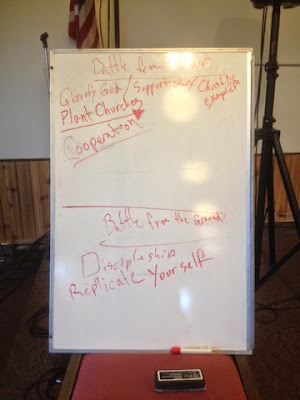 Battle from
Glorify God / Support / Christ like
Plant Churches examples
Cooperation
Battle from the Ground
Discipleship
Replicate Yourself